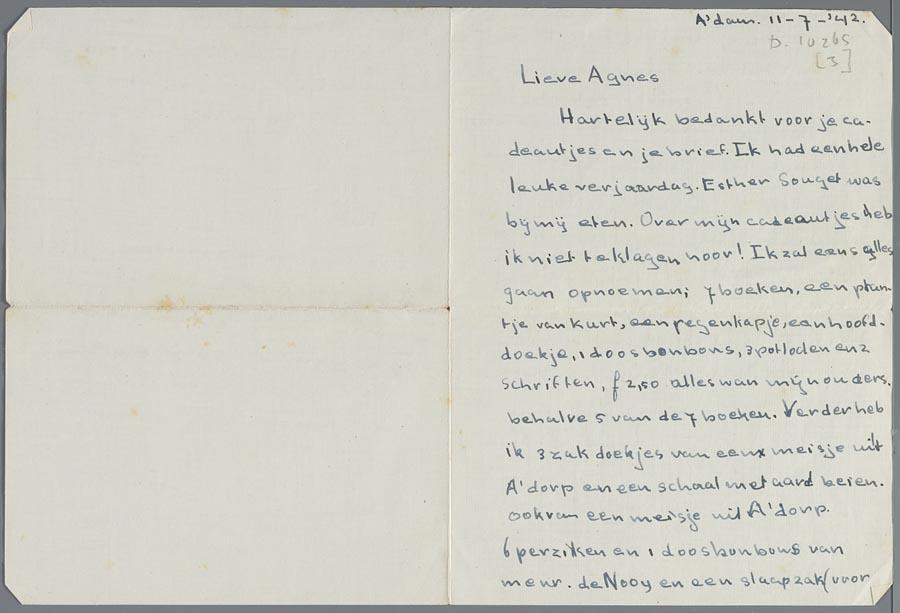 A'dam. 11-7-'42.
D. 10265
[3]
Lieve Agnes
Hartelijk bedankt voor je ca-
deautjes en je brief. Ik had een hele
leuke verjaardag. Esther Souget was
bij mij eten. Over mijn cadeautjes heb
ik niet te klagen hoor! Ik zal eens alles
gaan opnoemen; 7 boeken, een plan-
tje van Kurt, een regenkapje, een hoofd-
doekje, 1 doos bonbons, 3 potloden en 2
schriften, f 2,50 alles van mijn ouders.
behalve 5 van de 7 boeken. Verder heb
ik 3 zakdoekjes van een meisje uit
A'dorp en een schaal met aardbeien.
ook van een meisje uit A'dorp.
6 perziken en 1 doos bonbons van
menr. de Nooy en een slaapzak (voor